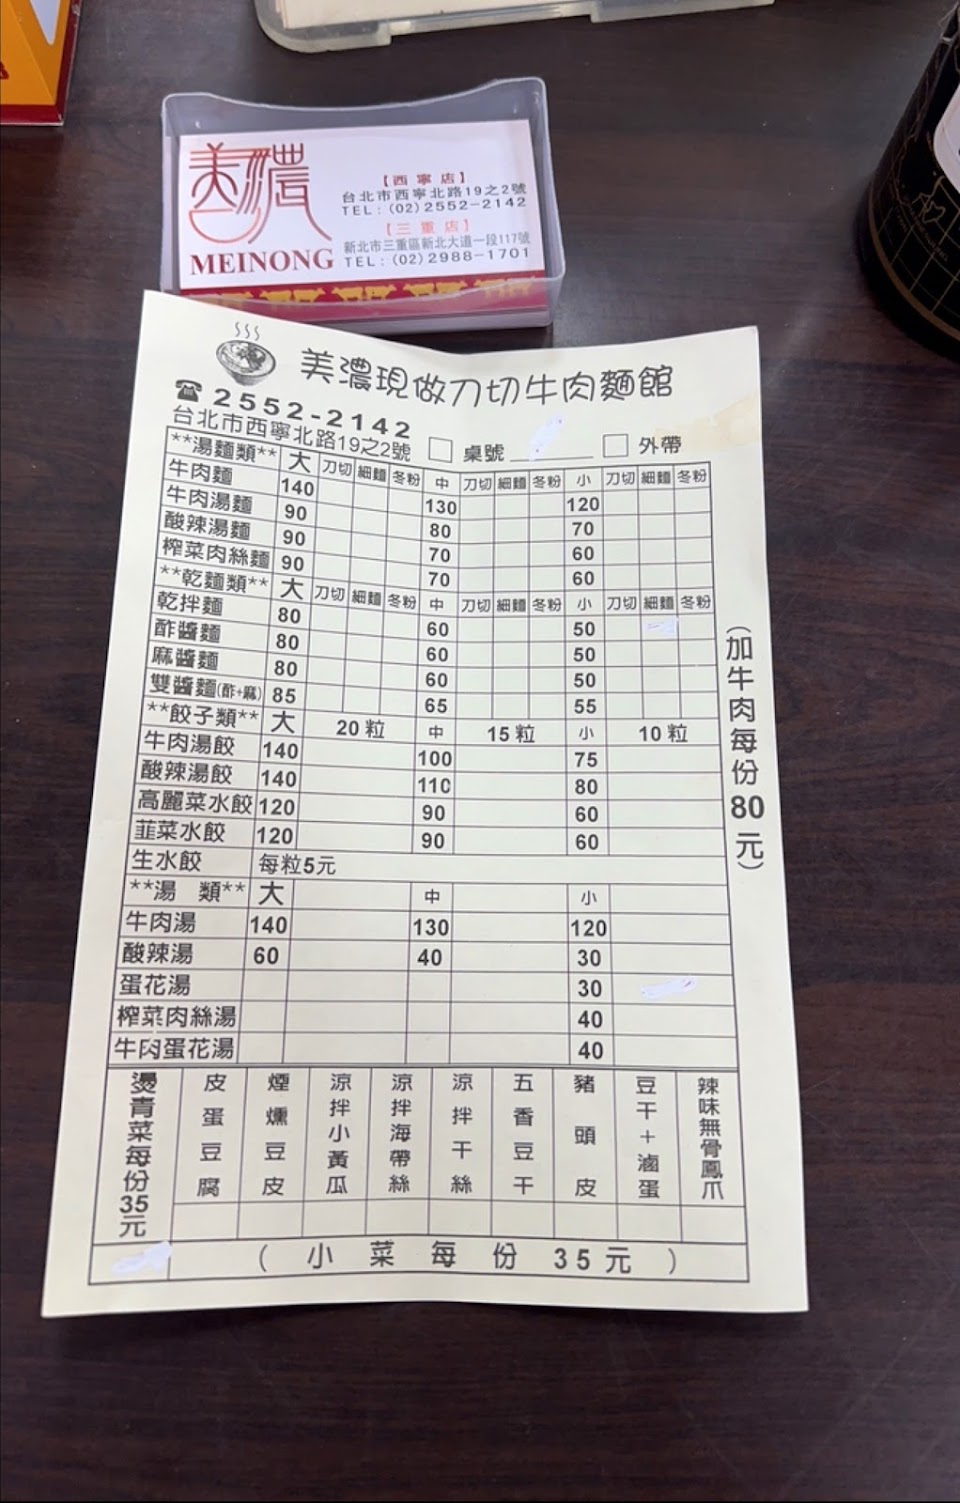 美濃
MEINONG
【西寧店】
台北市西寧北路19之2號
TEL:(02)2552-2142
【三重店】
新北市三重區新北大道一段117號
TEL:(02)2988-1701
美濃現做刀切牛肉麵館
☎2552-2142
台北市西寧北路19之2號 □ 桌號______ □ 外帶
**湯麵類** 大 刀切 細麵 冬粉 中 刀切 細麵 冬粉 小 刀切 細麵 冬粉
牛肉麵 140 130 120
牛肉湯麵 90 80 70
酸辣湯麵 90 70 60
榨菜肉絲麵 90 70 60
**乾麵類** 大 刀切 細麵 冬粉 中 刀切 細麵 冬粉 小 刀切 細麵 冬粉
乾拌麵 80 60 50
酢醬麵 80 60 50
麻醬麵 80 60 50
雙醬麵(酢+麻) 85 65 55
**餃子類** 大 20粒 中 15粒 小 10粒
牛肉湯餃 140 100 75
酸辣湯餃 140 110 80
高麗菜水餃 120 90 60
韮菜水餃 120 90 60
生水餃 每粒5元
**湯 類** 大 中 小
牛肉湯 140 130 120
酸辣湯 60 40 30
蛋花湯 30
榨菜肉絲湯 40
牛肉蛋花湯 40
(加牛肉每份80元)
燙青菜每份35元
皮蛋豆腐
煙燻豆皮
涼拌小黃瓜
涼拌海帶絲
涼拌干絲
五香豆干
豬頭皮
豆干+滷蛋
辣味無骨鳳爪
(小菜每份35元)